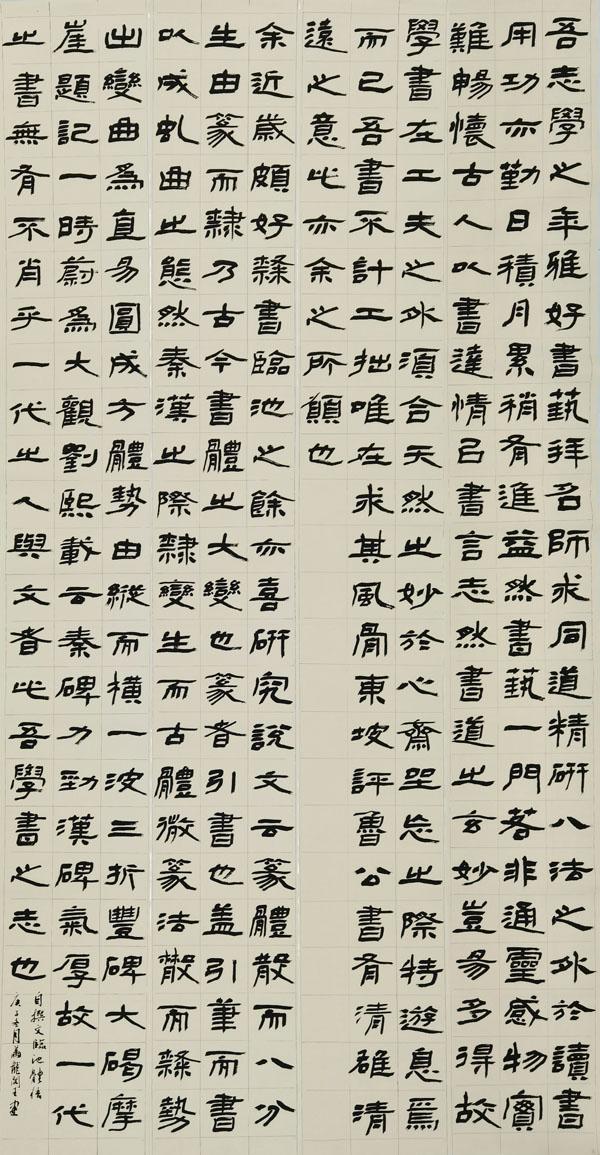 吾志學之年雅好書藝拜名師求同道精研八法之外於讀書
用功亦勤日積月累稍有進益然書藝一門若非通靈感物實
難暢懷古人以書達情以書言志然書道之玄妙豈易多得故
學書在工夫之外須合天然之妙於心齋坐忘之際特遊息焉
而已吾書不計工拙唯在求其風骨東坡評魯公書有清雄清
遠之意此亦余之所願也
余近歲頗好隸書臨池之餘亦喜研究說文云篆體散而八分
生由篆而隸乃古今書體之大變也篆者引書也蓋引筆而書
以成虬曲之態然秦漢之際隸變生而古體微篆法散而隸勢
出變曲為直易圓成方體勢由縱而橫一波三折豐碑大碣摩
崖題記一時蔚為大觀劉熙載云秦碑力勁漢碑氣厚故一代
之書無有不肖乎一代之人與文者此吾學書之志也
自撰文臨池體悟
庚子月龍王